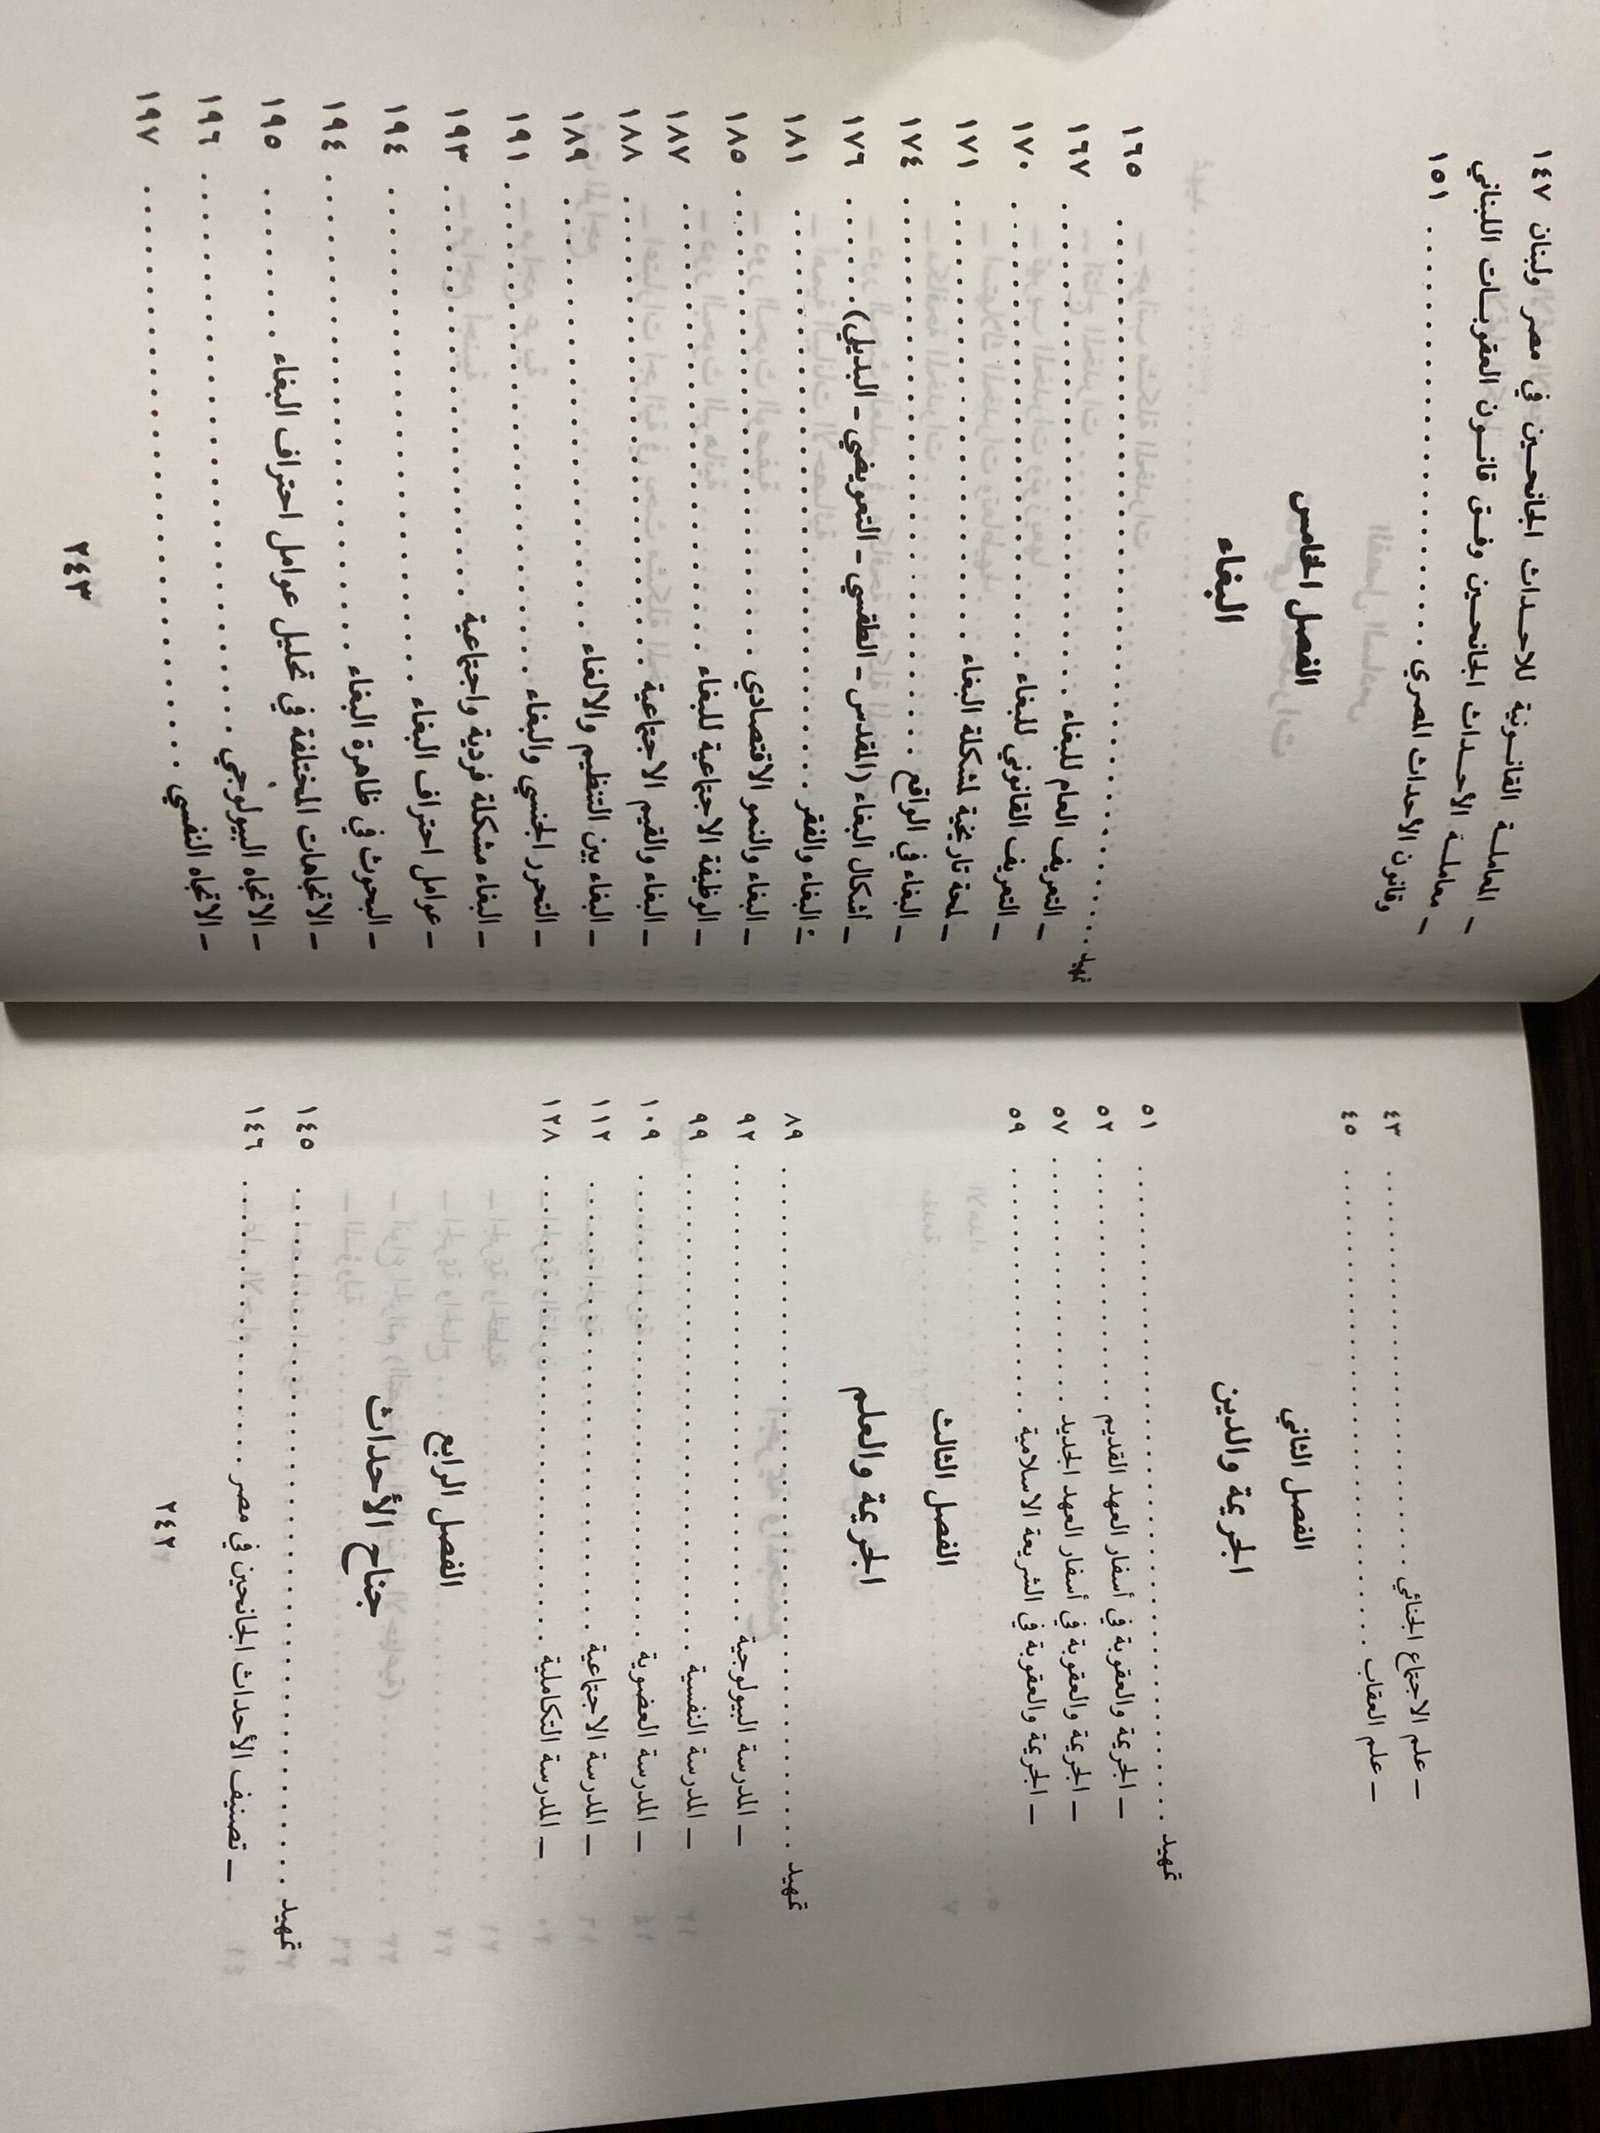 - علم الاجتماع الجنائي ٤٣
- علم العقاب ٤٥
الفصل الثاني
الجريمة والدين
تمهيد ٥١
- الجريمة والعقوبة في أسفار العهد القديم ٥٢
- الجريمة والعقوبة في أسفار العهد الجديد ٥٧
- الجريمة والعقوبة في الشريعة الاسلامية ٥٩
الفصل الثالث
الجريمة والعلم
تمهيد ٨٩
- المدرسة البيولوجية ٩٢
- المدرسة النفسية ٩٩
- المدرسة العضوية ١٠٩
- المدرسة الاجتماعية ١١٢
- المدرسة التكاملية ١٢٨
الفصل الرابع
جناح الأحداث
تمهيد ١٤٥
- تصنيف الأحداث الجانحين في مصر ١٤٦
٢٤٢
- المعاملة القانونية للاحداث الجانحين في مصر ولبنان ١٤٧
- معاملة الأحداث الجانحين وفق قانون العقوبات اللبناني
وقانون الأحداث المصري ١٥١
الفصل الخامس
البغاء
تمهيد ١٦٥
- التعريف العام للبغاء ١٦٧
- التعريف القانوني للبغاء ١٧٠
- لمحة تاريخية لمشكلة البغاء ١٧١
- البغاء في الواقع ١٧٤
- أشكال البغاء (المقدس - الطقسي - التعويضي - البديلي) ١٧٦
- البغاء والفقر ١٨١
- البغاء والنمو الاقتصادي ١٨٥
- الوظيفة الاجتماعية للبغاء ١٨٧
- البغاء والقيم الاجتماعية ١٨٨
- البغاء بين التنظيم والالغاء ١٨٩
- التحرر الجنسي والبغاء ١٩١
- البغاء مشكلة فردية واجتماعية ١٩٣
- عوامل احتراف البغاء ١٩٤
- البحوث في ظاهرة البغاء ١٩٤
- الاتجاهات المختلفة في تحليل عوامل احتراف البغاء ١٩٥
- الاتجاه البيولوجي ١٩٦
- الاتجاه النفسي ١٩٧
٢٤٣